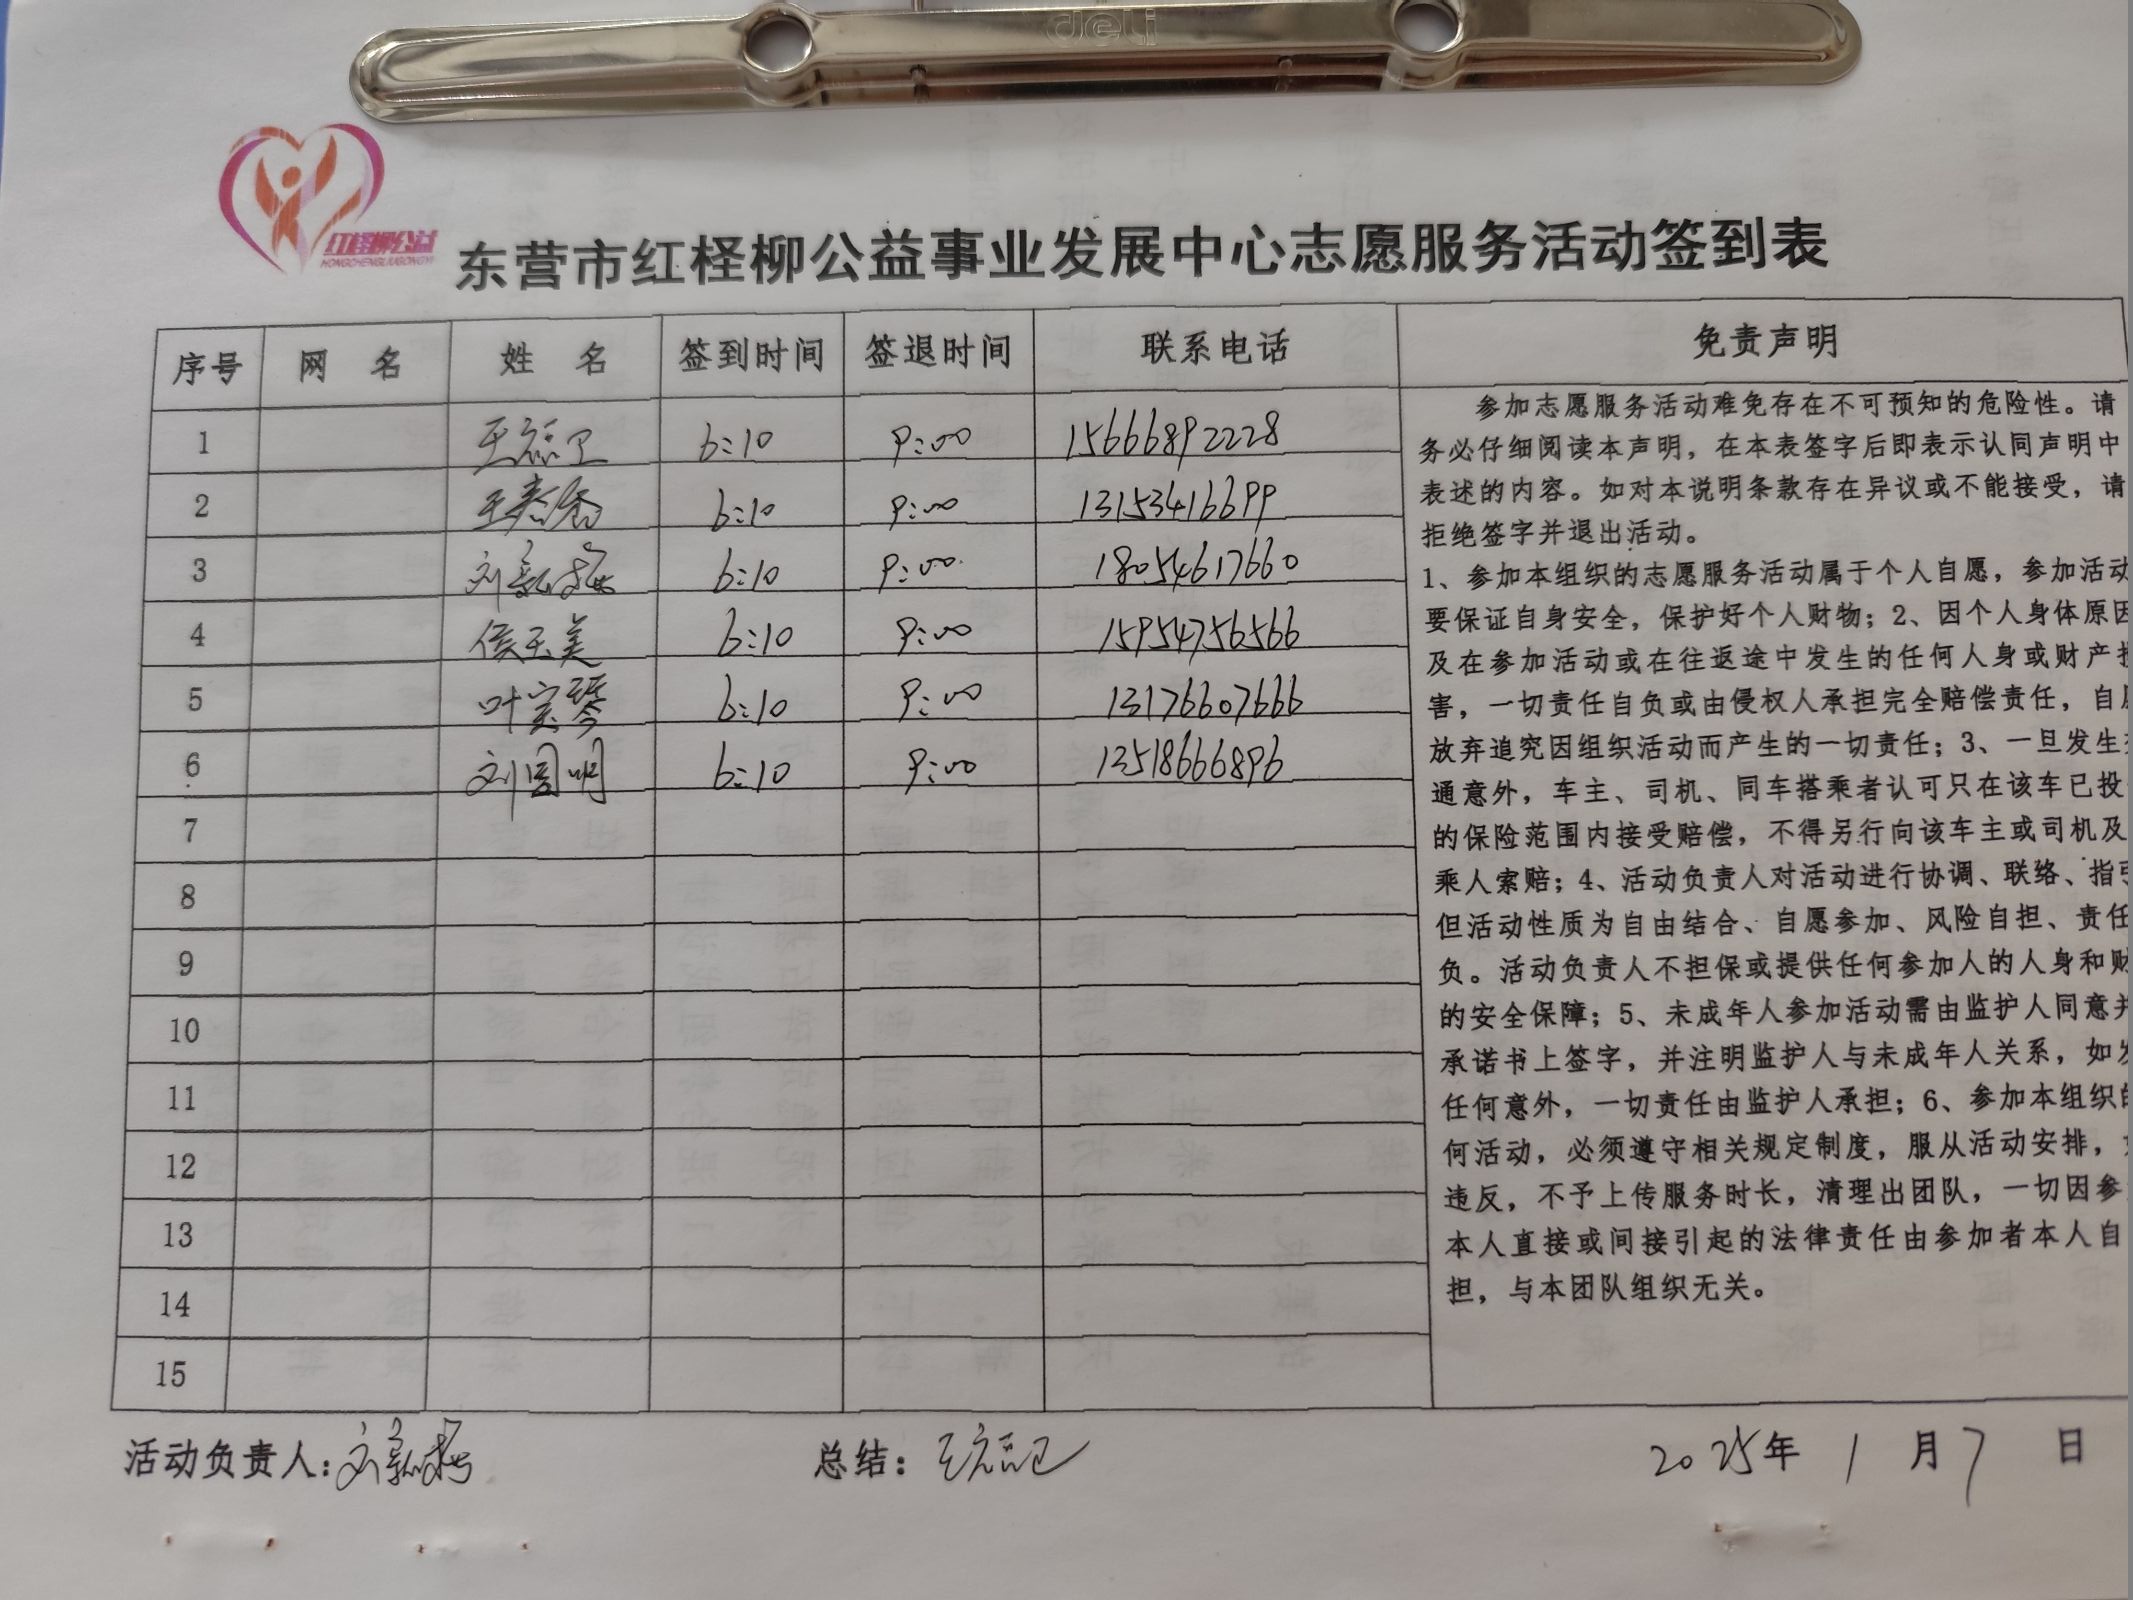 deli
红柽柳公益
HONGCHENGLIUGONGYI
东营市红柽柳公益事业发展中心志愿服务活动签到表
序号 网 名 姓 名 签到时间 签退时间 联系电话 免责声明
1 王磊卫 6:10 9:00 15666892228
2 王春香 6:10 9:00 13153416699
3 刘新梅 6:10 9:00 18054617660
4 侯玉美 6:10 9:00 15954756566
5 叶宝琴 6:10 9:00 13176607666
6 刘国明 6:10 9:00 13518666896
7
8
9
10
11
12
13
14
15
参加志愿服务活动难免存在不可预知的危险性。请
务必仔细阅读本声明，在本表签字后即表示认同声明中
表述的内容。如对本说明条款存在异议或不能接受，请
拒绝签字并退出活动。
1、参加本组织的志愿服务活动属于个人自愿，参加活动
要保证自身安全，保护好个人财物；2、因个人身体原因
及在参加活动或在往返途中发生的任何人身或财产
害，一切责任自负或由侵权人承担完全赔偿责任，自
放弃追究因组织活动而产生的一切责任；3、一旦发生
通意外，车主、司机、同车搭乘者认可只在该车已投
的保险范围内接受赔偿，不得另行向该车主或司机及
乘人索赔；4、活动负责人对活动进行协调、联络、指
但活动性质为自由结合、自愿参加、风险自担、责任
负。活动负责人不担保或提供任何参加人的人身和财
的安全保障；5、未成年人参加活动需由监护人同意并
承诺书上签字，并注明监护人与未成年人关系，如
任何意外，一切责任由监护人承担；6、参加本组织
何活动，必须遵守相关规定制度，服从活动安排，
违反，不予上传服务时长，清理出团队，一切因参
本人直接或间接引起的法律责任由参加者本人自
担，与本团队组织无关。
活动负责人：刘新梅 总结：王磊卫 2025年 1 月 7 日